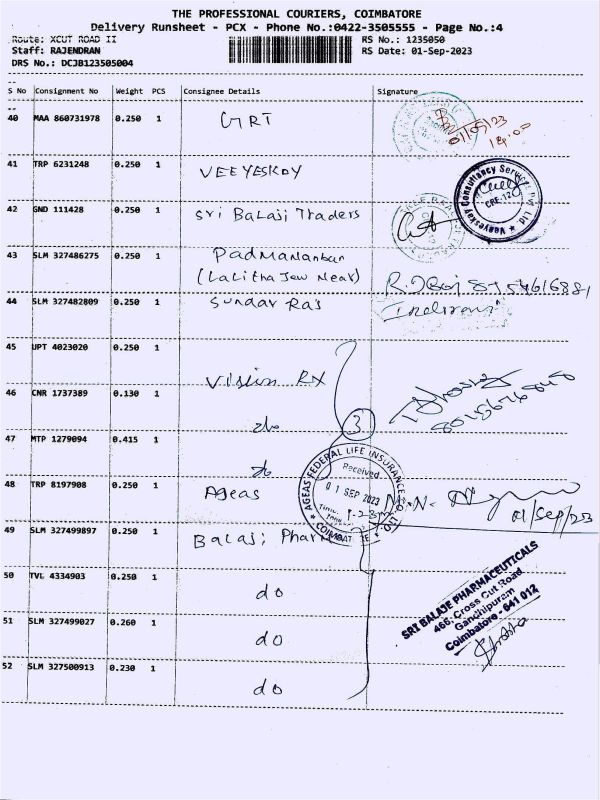 THE PROFESSIONAL COURIERS, COIMBATORE
Delivery Runsheet - PCX - Phone No.:0422-3505555 - Page No.:4
Route: XCUT ROAD II
RS No.: 1235050
Staff: RAJENDRAN
RS Date: 01-Sep-2023
DRS No.: DCJB123505004
S No Consignment No Weight PCS Consignee Details Signature
40 MAA 860731978 0.250 1 GRT
01/09/23
41 TRP 6231248 0.250 1 VEEYESKOY
Veeyeskay Consultancy Services Pvt Ltd
CBE-12
42 GND 111428 0.250 1 Sri Balaji Traders
43 SLM 327486275 0.250 1 Padmanaban
(Lalitha Jew Near)
44 SLM 327482809 0.250 1 Sundar Raj
45 UPT 4023020 0.250 1
Vision RX
46 CNR 1737389 0.130 1 do
3
47 MTP 1279094 0.415 1 do
48 TRP 8197908 0.250 1 Ageas
AGEAS FEDERAL LIFE INSURANCE CO LTD
Received
01 SEP 2023
COIMBATORE
01/Sep/23
49 SLM 327499897 0.250 1 Balaji Pharma
50 TVL 4334903 0.250 1 do
SRI BALAJE PHARMACEUTICALS
466, Cross Cut Road
Gandhipuram
Coimbatore - 641 012
51 SLM 327499027 0.260 1 do
52 SLM 327500913 0.230 1 do